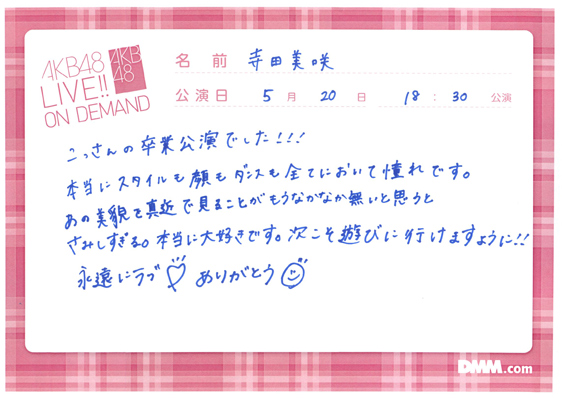 AKB48
LIVE!!
ON DEMAND
AKB
48
名前 寺田美咲
公演日 5月20日 18:30公演
こっさんの卒業公演でした!!!
本当にスタイルも顔もダンスも全てにおいて憧れです。
あの美貌を真近で見ることがもうなかなか無いと思うと
さみしすぎる。本当に大好きです。次こそ遊びに行けますように!!
永遠にラブ♡ ありがとう☺
DMM.com